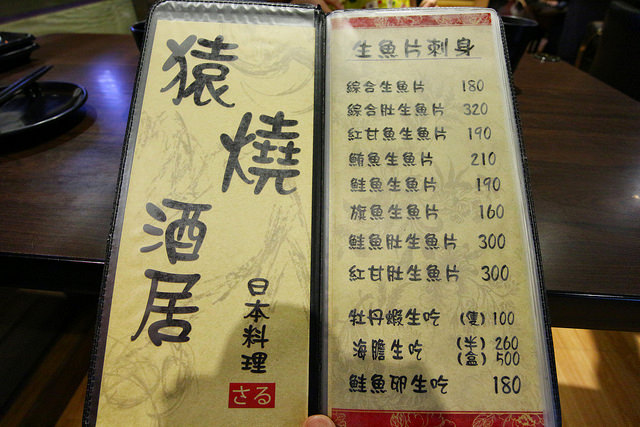 猿燒
酒居
日本料理
さる
生魚片刺身
綜合生魚片 180
綜合肚生魚片 320
紅甘魚生魚片 190
鮪魚生魚片 210
鮭魚生魚片 190
旗魚生魚片 160
鮭魚肚生魚片 300
紅甘肚生魚片 300
牡丹蝦生吃 (隻) 100
海膽生吃 (半) 260
(盒) 500
鮭魚卵生吃 180